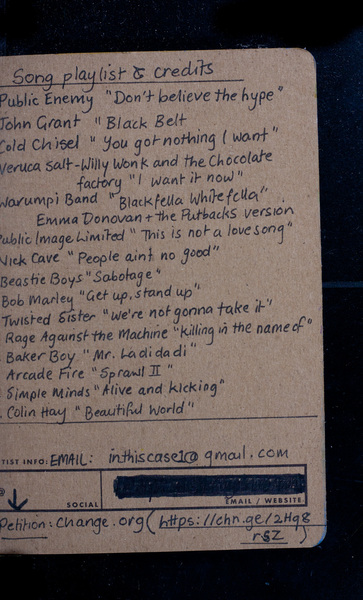 Song playlist & credits
Public Enemy "Don't believe the hype"
John Grant "Black Belt
Cold Chisel "You got nothing I want"
Veruca Salt-Willy Wonk and the Chocolate
factory "I want it now"
Warumpi Band "Blackfella Whitefella"
Emma Donovan + the Putbacks version
Public Image Limited "This is not a love song"
Nick Cave "People aint no good"
Beastie Boys "Sabotage"
Bob Marley "Get up, stand up"
Twisted Sister "We're not gonna take it"
Rage Against the Machine "Killing in the name of"
Baker Boy "Mr. La di da di"
Arcade Fire "Sprawl II"
Simple Minds "Alive and kicking"
Colin Hay "Beautiful World"
TIST INFO: EMAIL: inthiscase1@gmail.com
SOCIAL
EMAIL / WEBSITE
Petition: Change.org (https://chn.ge/2Hq8
rSZ)